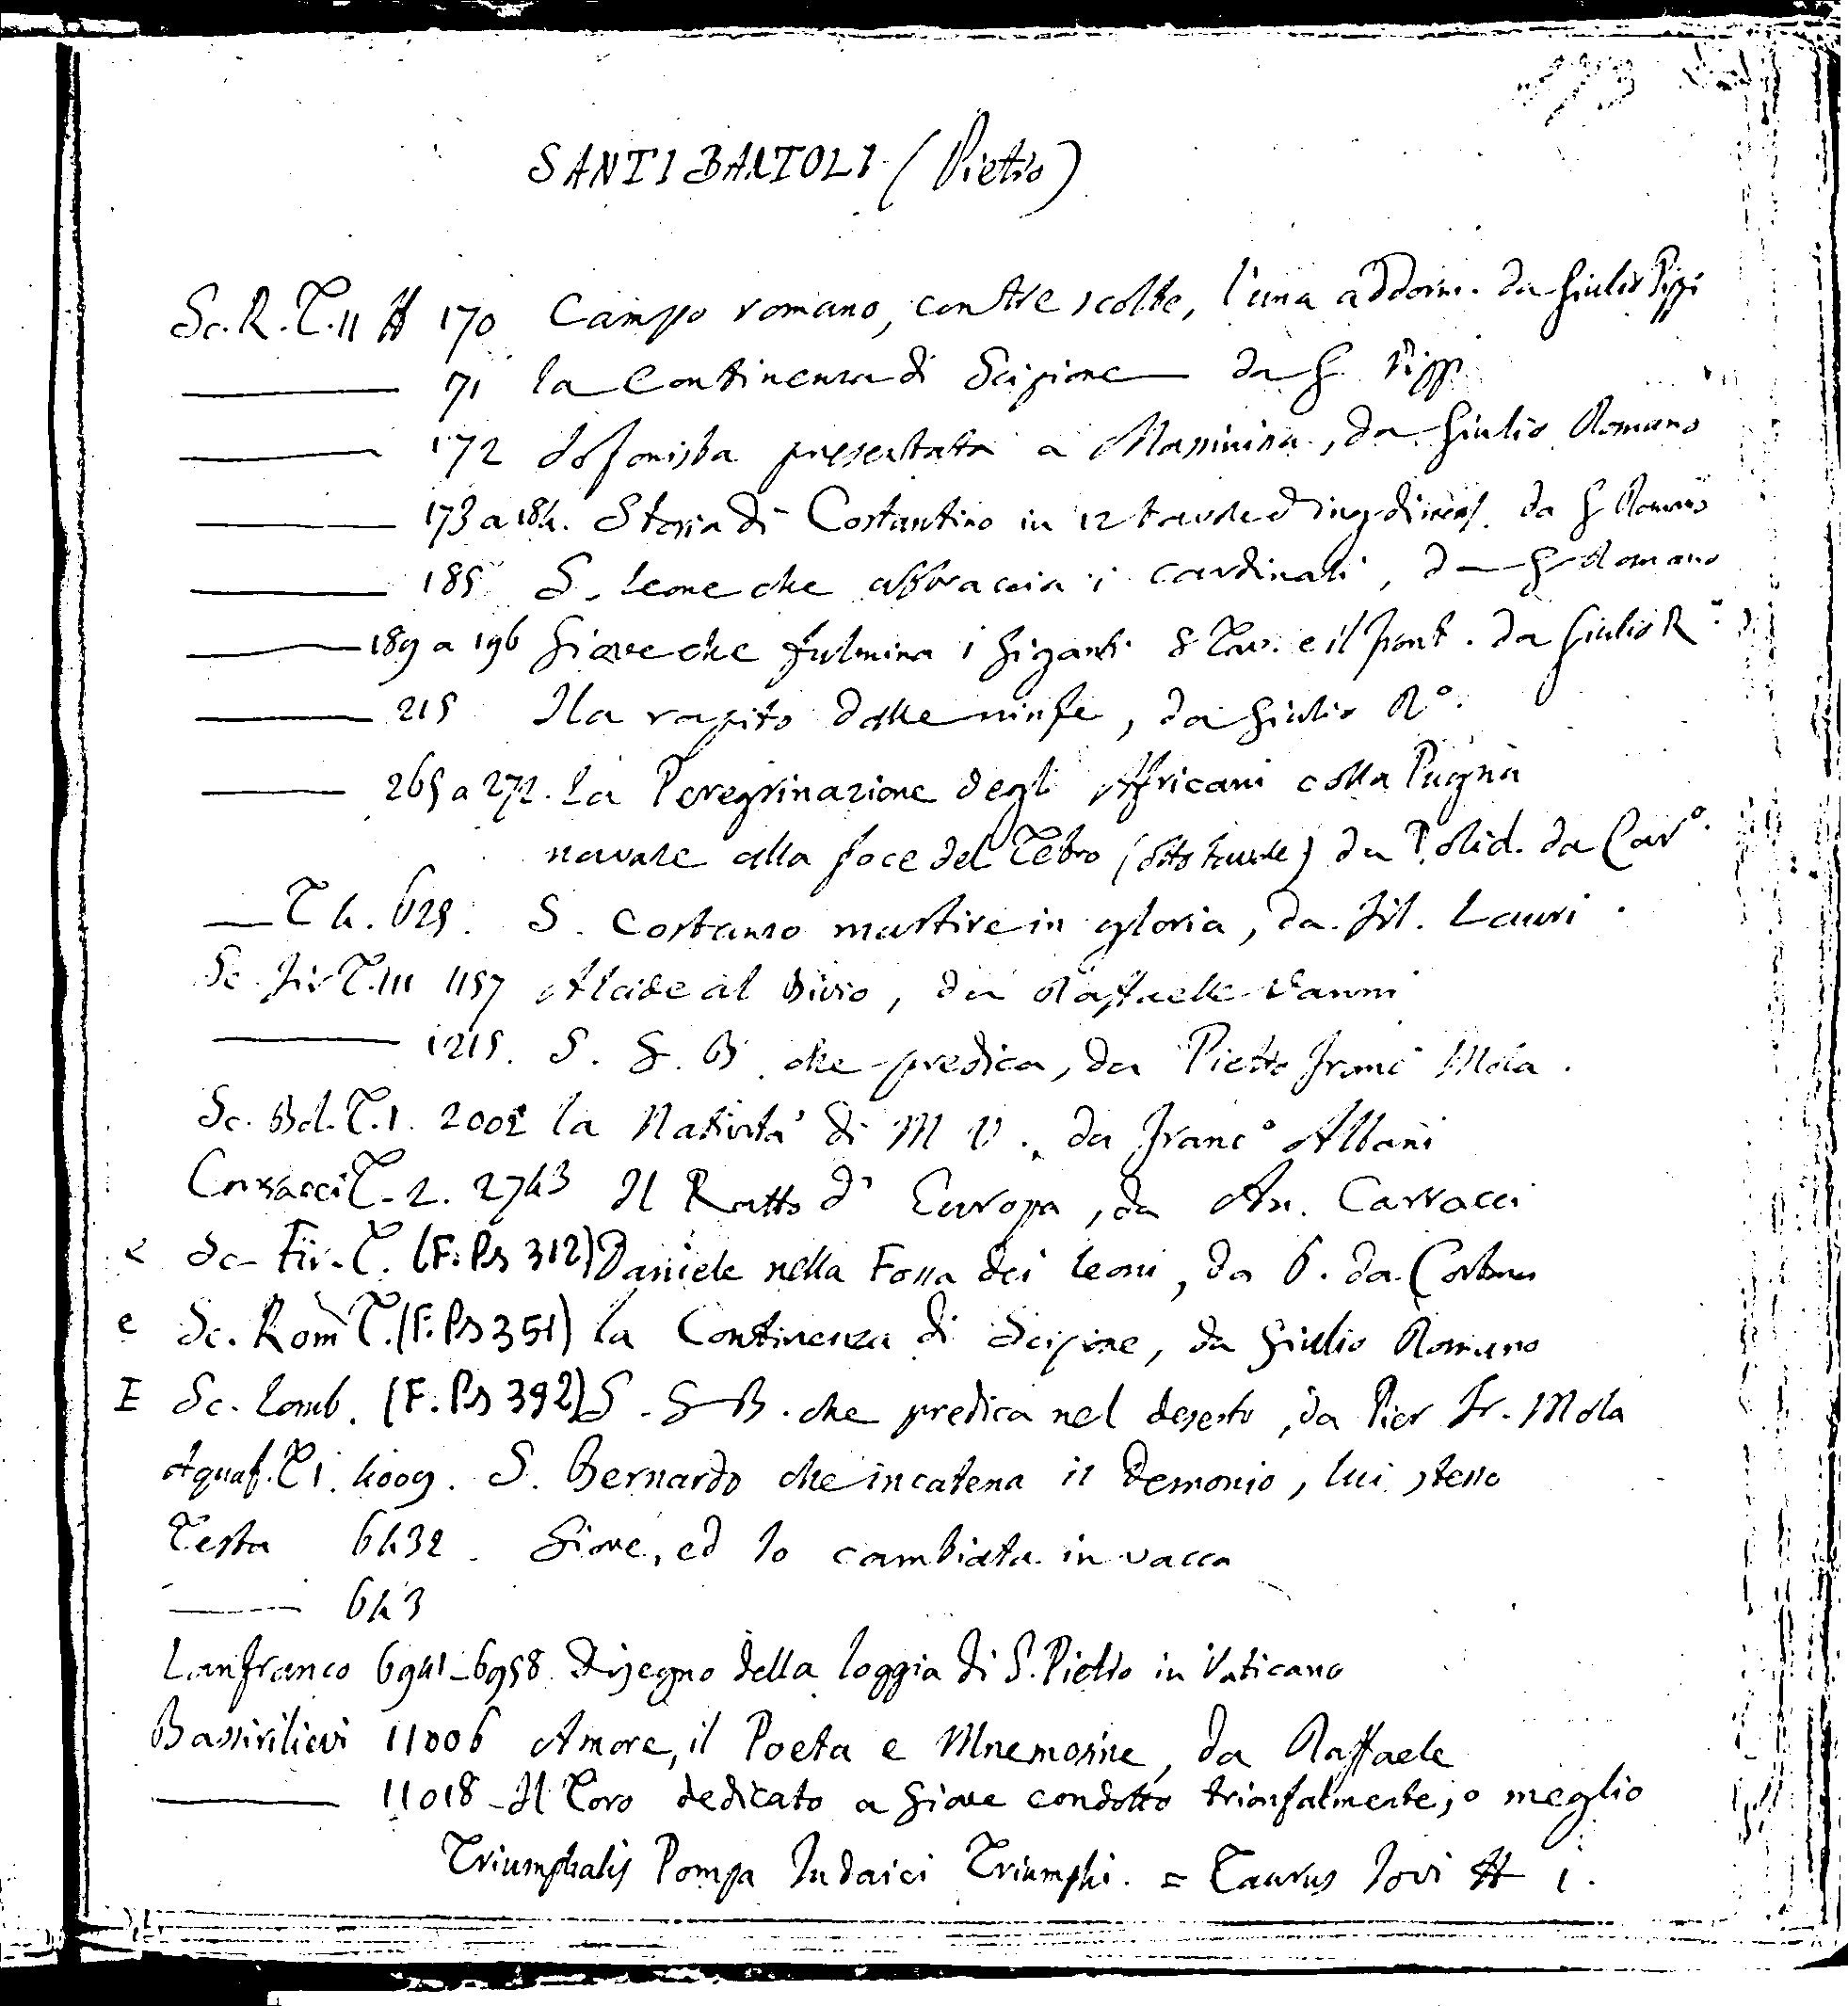 173
SANTI BARTOLI (Pietro)
Sc. R. T. II # 170 Campo romano, con tre scolte, l'una addorm. da Giulio Pippi
——— 71 la Continenza di Scipione da G. Pippi
——— 172 Sofonisba presentata a Massinissa, da Giulio Romano
——— 173 a 184. Storia di Costantino in 12 tavole d da G Romano
——— 185 S. Leone che abbraccia i cardinali, da G. Romano
——— 189 a 196 Giove che fulmina i Giganti 8 Tav. e il front. da Giulio R°
——— 215 Ila rapito dalle ninfe, da Giulio R°.
——— 265 a 272. La Peregrinazione degli Africani colla Pugna
navale alla foce del Tebro (otto tavole) da Polid. da Car°.
— T 4. 625. S. Costanzo martire in gloria, da Fil. Lauri.
Sc. Fir T. III 1157 Alcide al bivio, da Raffaelle Vanni
——— 1215. S. G. B. che predica, da Pietro Franc° Mola.
Sc. Bol. T. 1. 2002 la Natività di M V., da Franc° Albani
Carracci T. 2. 2743 Il Ratto d' Europa, da An. Carracci
Sc. Fir. T. (F. Ps 312) Daniele nella Fossa dei Leoni, da P. da Cortona
e Sc. Rom T. (F. Ps 351) la Continenza di Scipione, da Giulio Romano
E Sc. Lomb. (F. Ps 392) S. G B. che predica nel deserto, da Pier Fr. Mola
Aquaf. T 1. 4009. S. Bernardo che incatena il Demonio, lui stesso
Testa 6432. Giove, ed Io cambiata in vacca
——— 643
Lanfranco 6941-6958. Disegno della loggia di S. Pietro in Vaticano
Bassirilievi 11006 Amore, il Poeta e Mnemosine, da Raffaele
——— 11018 - Il Toro dedicato a Giove condotto trionfalmente, o meglio
Triumphalis Pompa Iudaici Triumphi. = Taurus Iovi # 1.